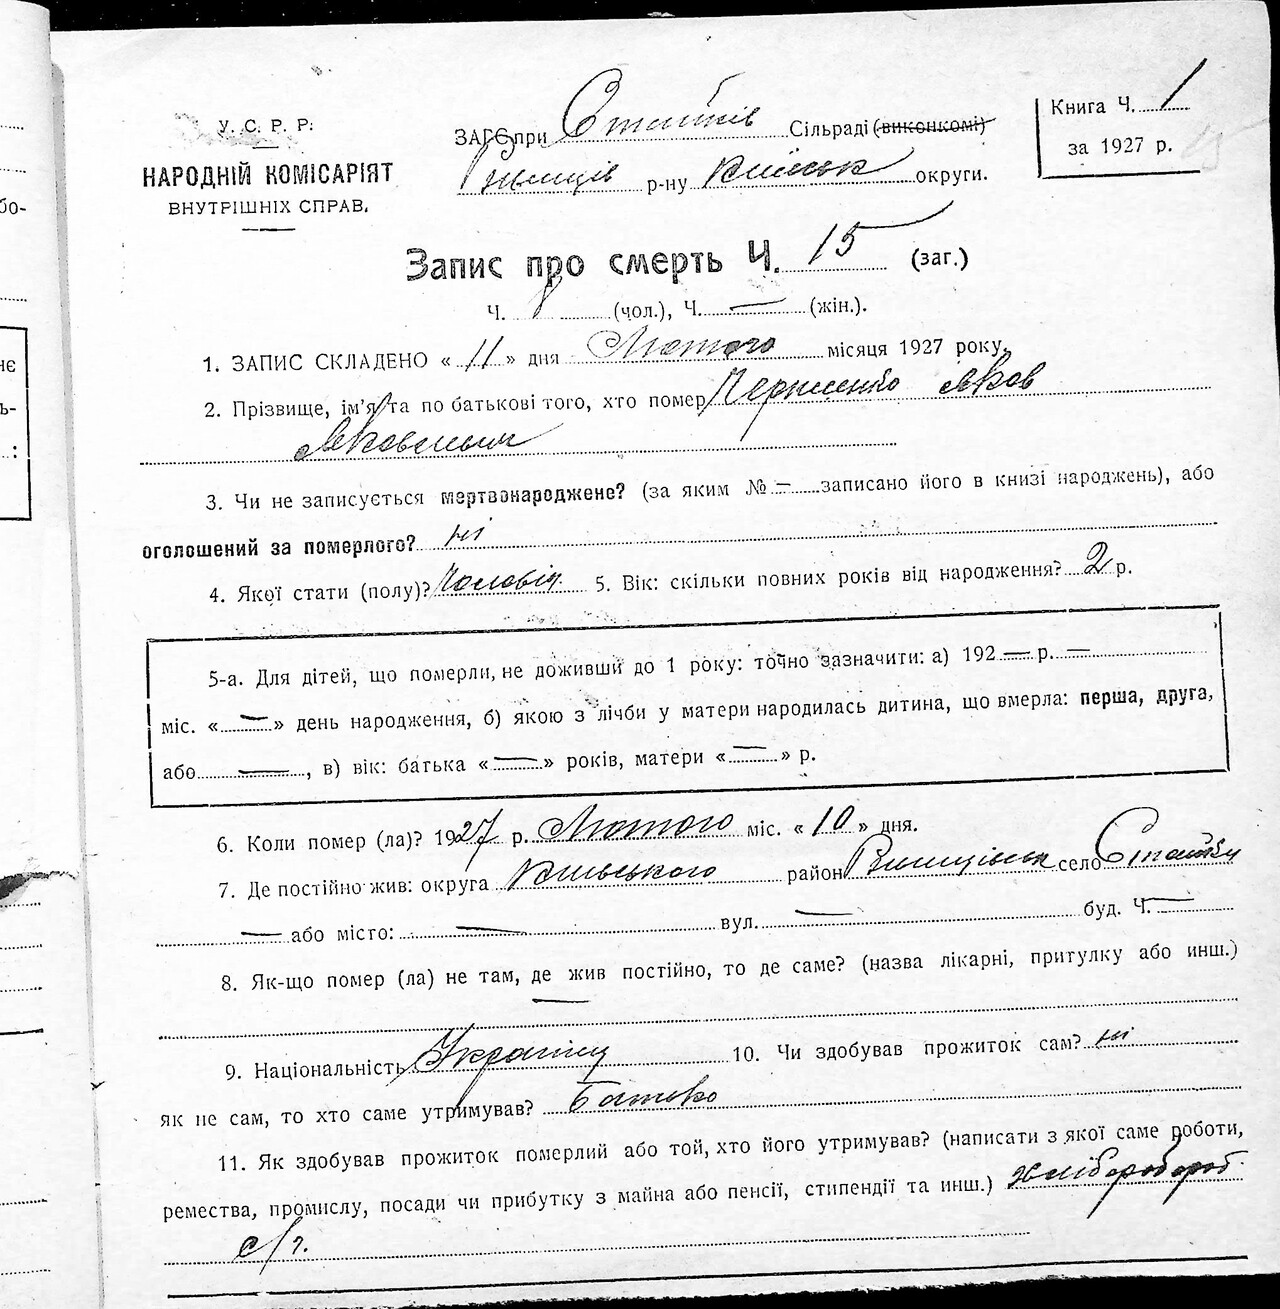 У. С. Р. Р.
НАРОДНІЙ КОМІСАРІЯТ
ВНУТРІШНІХ СПРАВ.
ЗАГС при Стайків Сільраді (виконкомі)
р-ну Київськ округи.
Книга Ч. 1
за 1927 р.
15
Запис про смерть Ч. 15 (заг.)
Ч. 8 (чол.), Ч. — (жін.).
1. ЗАПИС СКЛАДЕНО « 11 » дня Лютого місяця 1927 року.
2. Прізвище, ім'я та по батькові того, хто помер Черненко Яков
Яковеньш
3. Чи не записується мертвонароджене? (за яким № — записано його в книзі народжень), або
оголошений за померлого? ні
4. Якої стати (полу)? Чоловіч. 5. Вік: скільки повних років від народження? 2 р.
5-а. Для дітей, що померли, не доживши до 1 року: точно зазначити: а) 192 — р. —
міс. « — » день народження, б) якою з лічби у матери народилась дитина, що вмерла: перша, друга,
або — , в) вік: батька « — » років, матери « — » р.
6. Коли помер (ла)? 1927 р. Лютого міс. « 10 » дня.
7. Де постійно жив: округа Київського район село Стайки
— або місто: — вул. — буд. Ч. —
8. Як-що помер (ла) не там, де жив постійно, то де саме? (назва лікарні, притулку або инш.)
—
9. Національність Українц 10. Чи здобував прожиток сам? ні
як не сам, то хто саме утримував? Батько
11. Як здобував прожиток померлий або той, хто його утримував? (написати з якої саме роботи,
ремества, промислу, посади чи прибутку з майна або пенсії, стипендії та инш.) хліборобороб.
с/г.
бо-
не
ь-
: